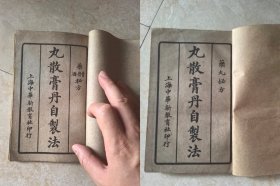 秘方
丸散膏丹自製法
上海中華新教育社印行
藥丸秘方
丸散膏丹自製法
上海中華新教育社印行